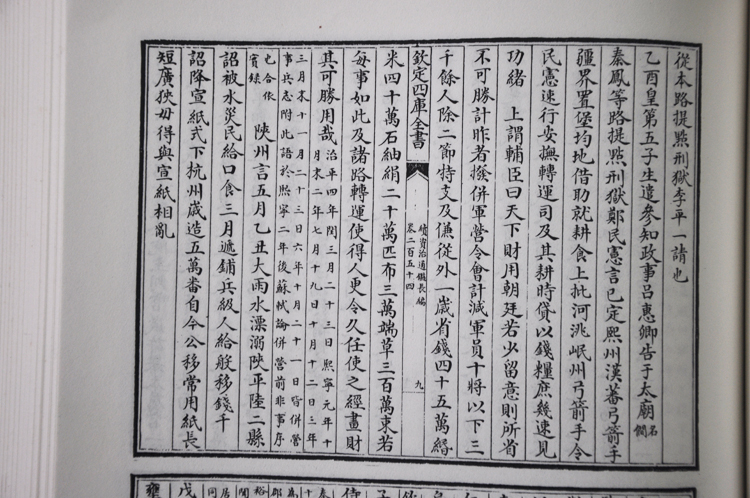 從本路提㸃刑獄李平一請也
乙酉皇第五子生遣參知政事吕惠卿告于太廟名僩
秦鳳等路提㸃刑獄鄭民憲言已定熙州漢蕃弓箭手
疆界置堡均地借助就耕食上批河洮岷州弓箭手令
民憲速行安撫轉運司及其耕時貸以錢糧庶幾速見
功緒 上謂輔臣曰天下財用朝廷若少留意則所省
不可勝計昨者撥併軍營令會計減軍員十將以下三
千餘人除二節特支及傔從外一歲省錢四十五萬緡
欽定四庫全書
續資治通鑑長編
卷二百五十四
九
米四十萬石紬絹二十萬匹布三萬端草三百萬束若
每事如此及諸路轉運使得人更令久任使之經畫財
其可勝用哉治平四年閏三月二十三日熙寧元年十
月末二年七月十九日十月十二日三年
三月末十一月二十三日六年十月二十一日皆併營
事兵志附此語於熙寧二年後蘇軾論併營前非事序
也合依
實錄 陜州言五月乙丑大雨水漂溺陜平陸二縣
詔被水災民給口食三月遞鋪兵級人給般移錢千
詔降宣紙式下杭州歲造五萬番自今公移常用紙長
短廣狹毋得與宣紙相亂